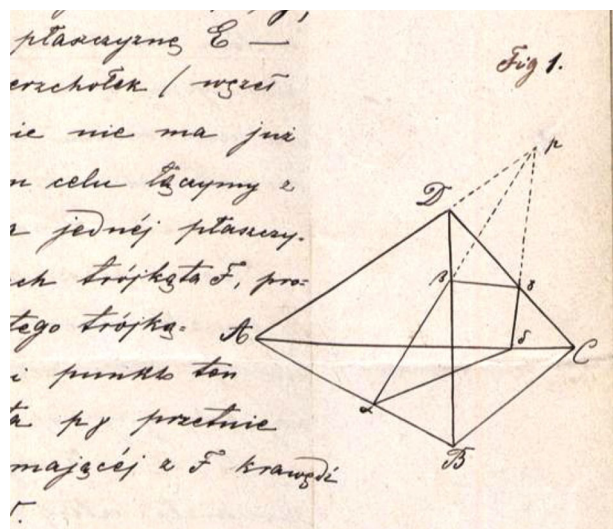 płaszczyznę E —
Fig 1.
erzchołek / węzeł
ie nie ma już
n celu łączymy z
jednéj płaszczy-
ch trójkąta F, pro=
tego trójką=
i punkt ten
ta pγ przetnie
mającéj z F krawędź
p
D
β
γ
A
δ
C
α
B